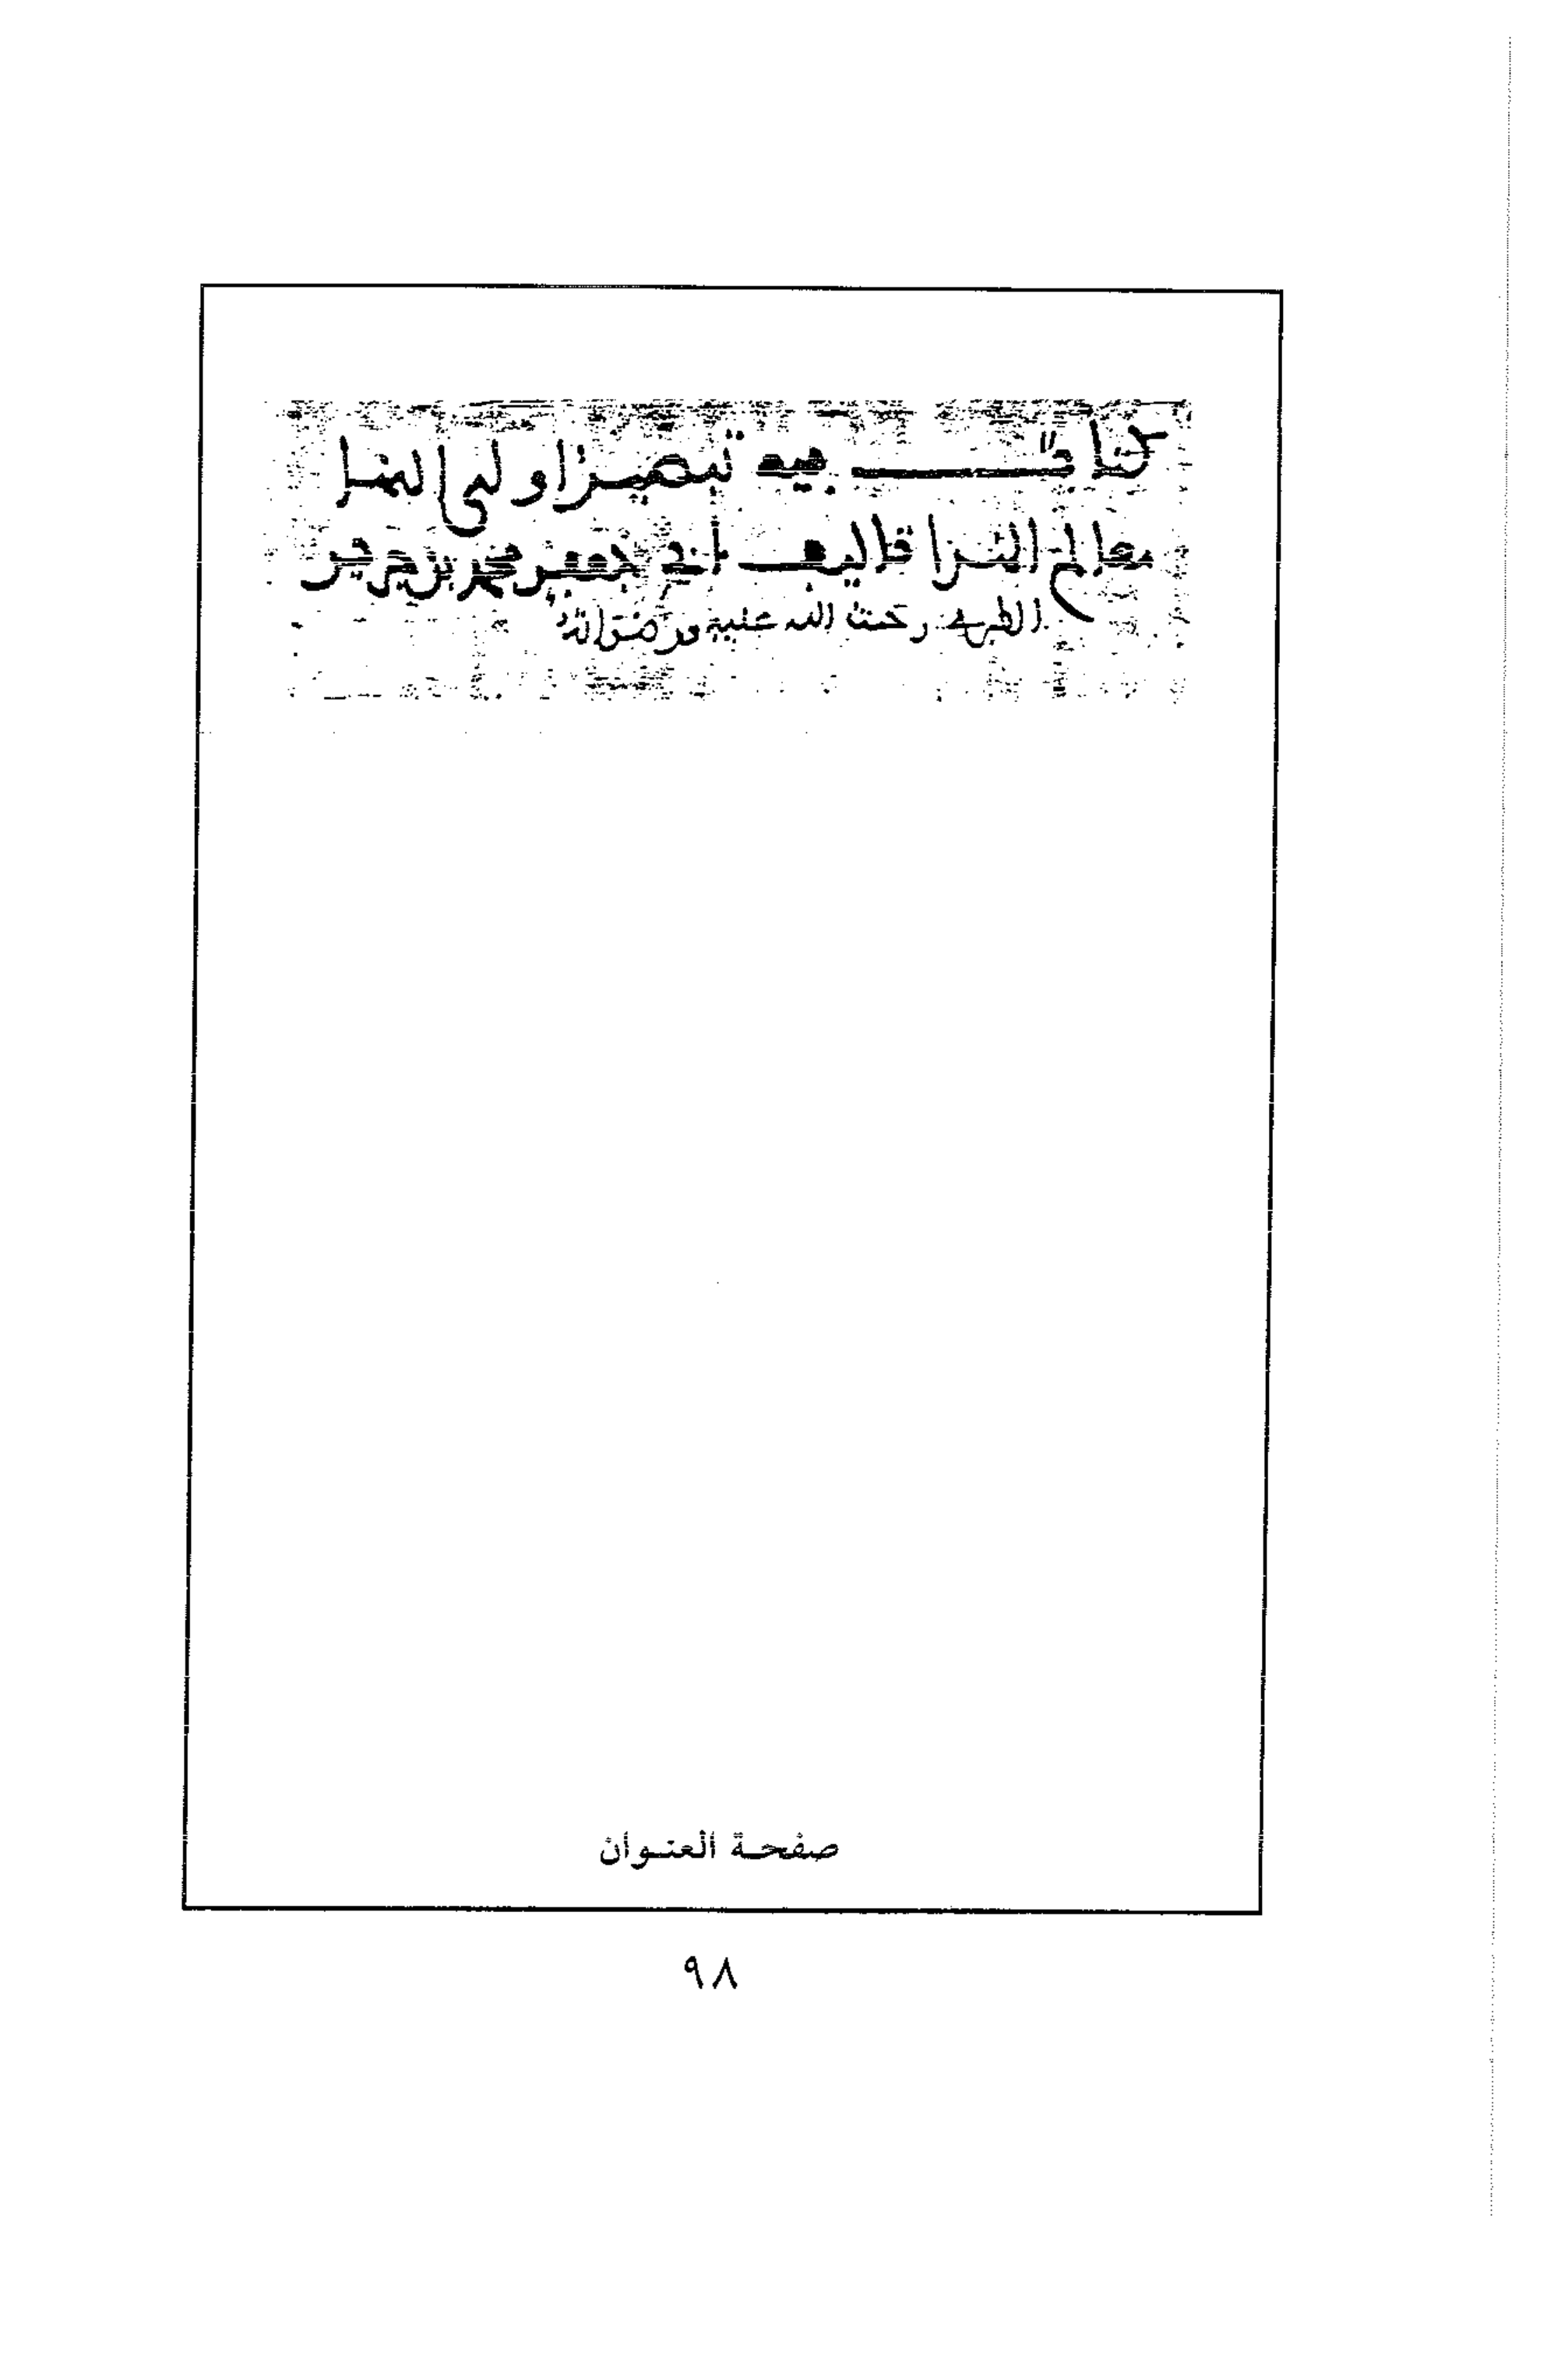 كتاب فيه تبصير اولى النها
معالم الهدا تاليف أبي جعفر محمد بن جرير
الطبري رحمت الله عليه ورضوانه
صفحة العنوان
٩٨